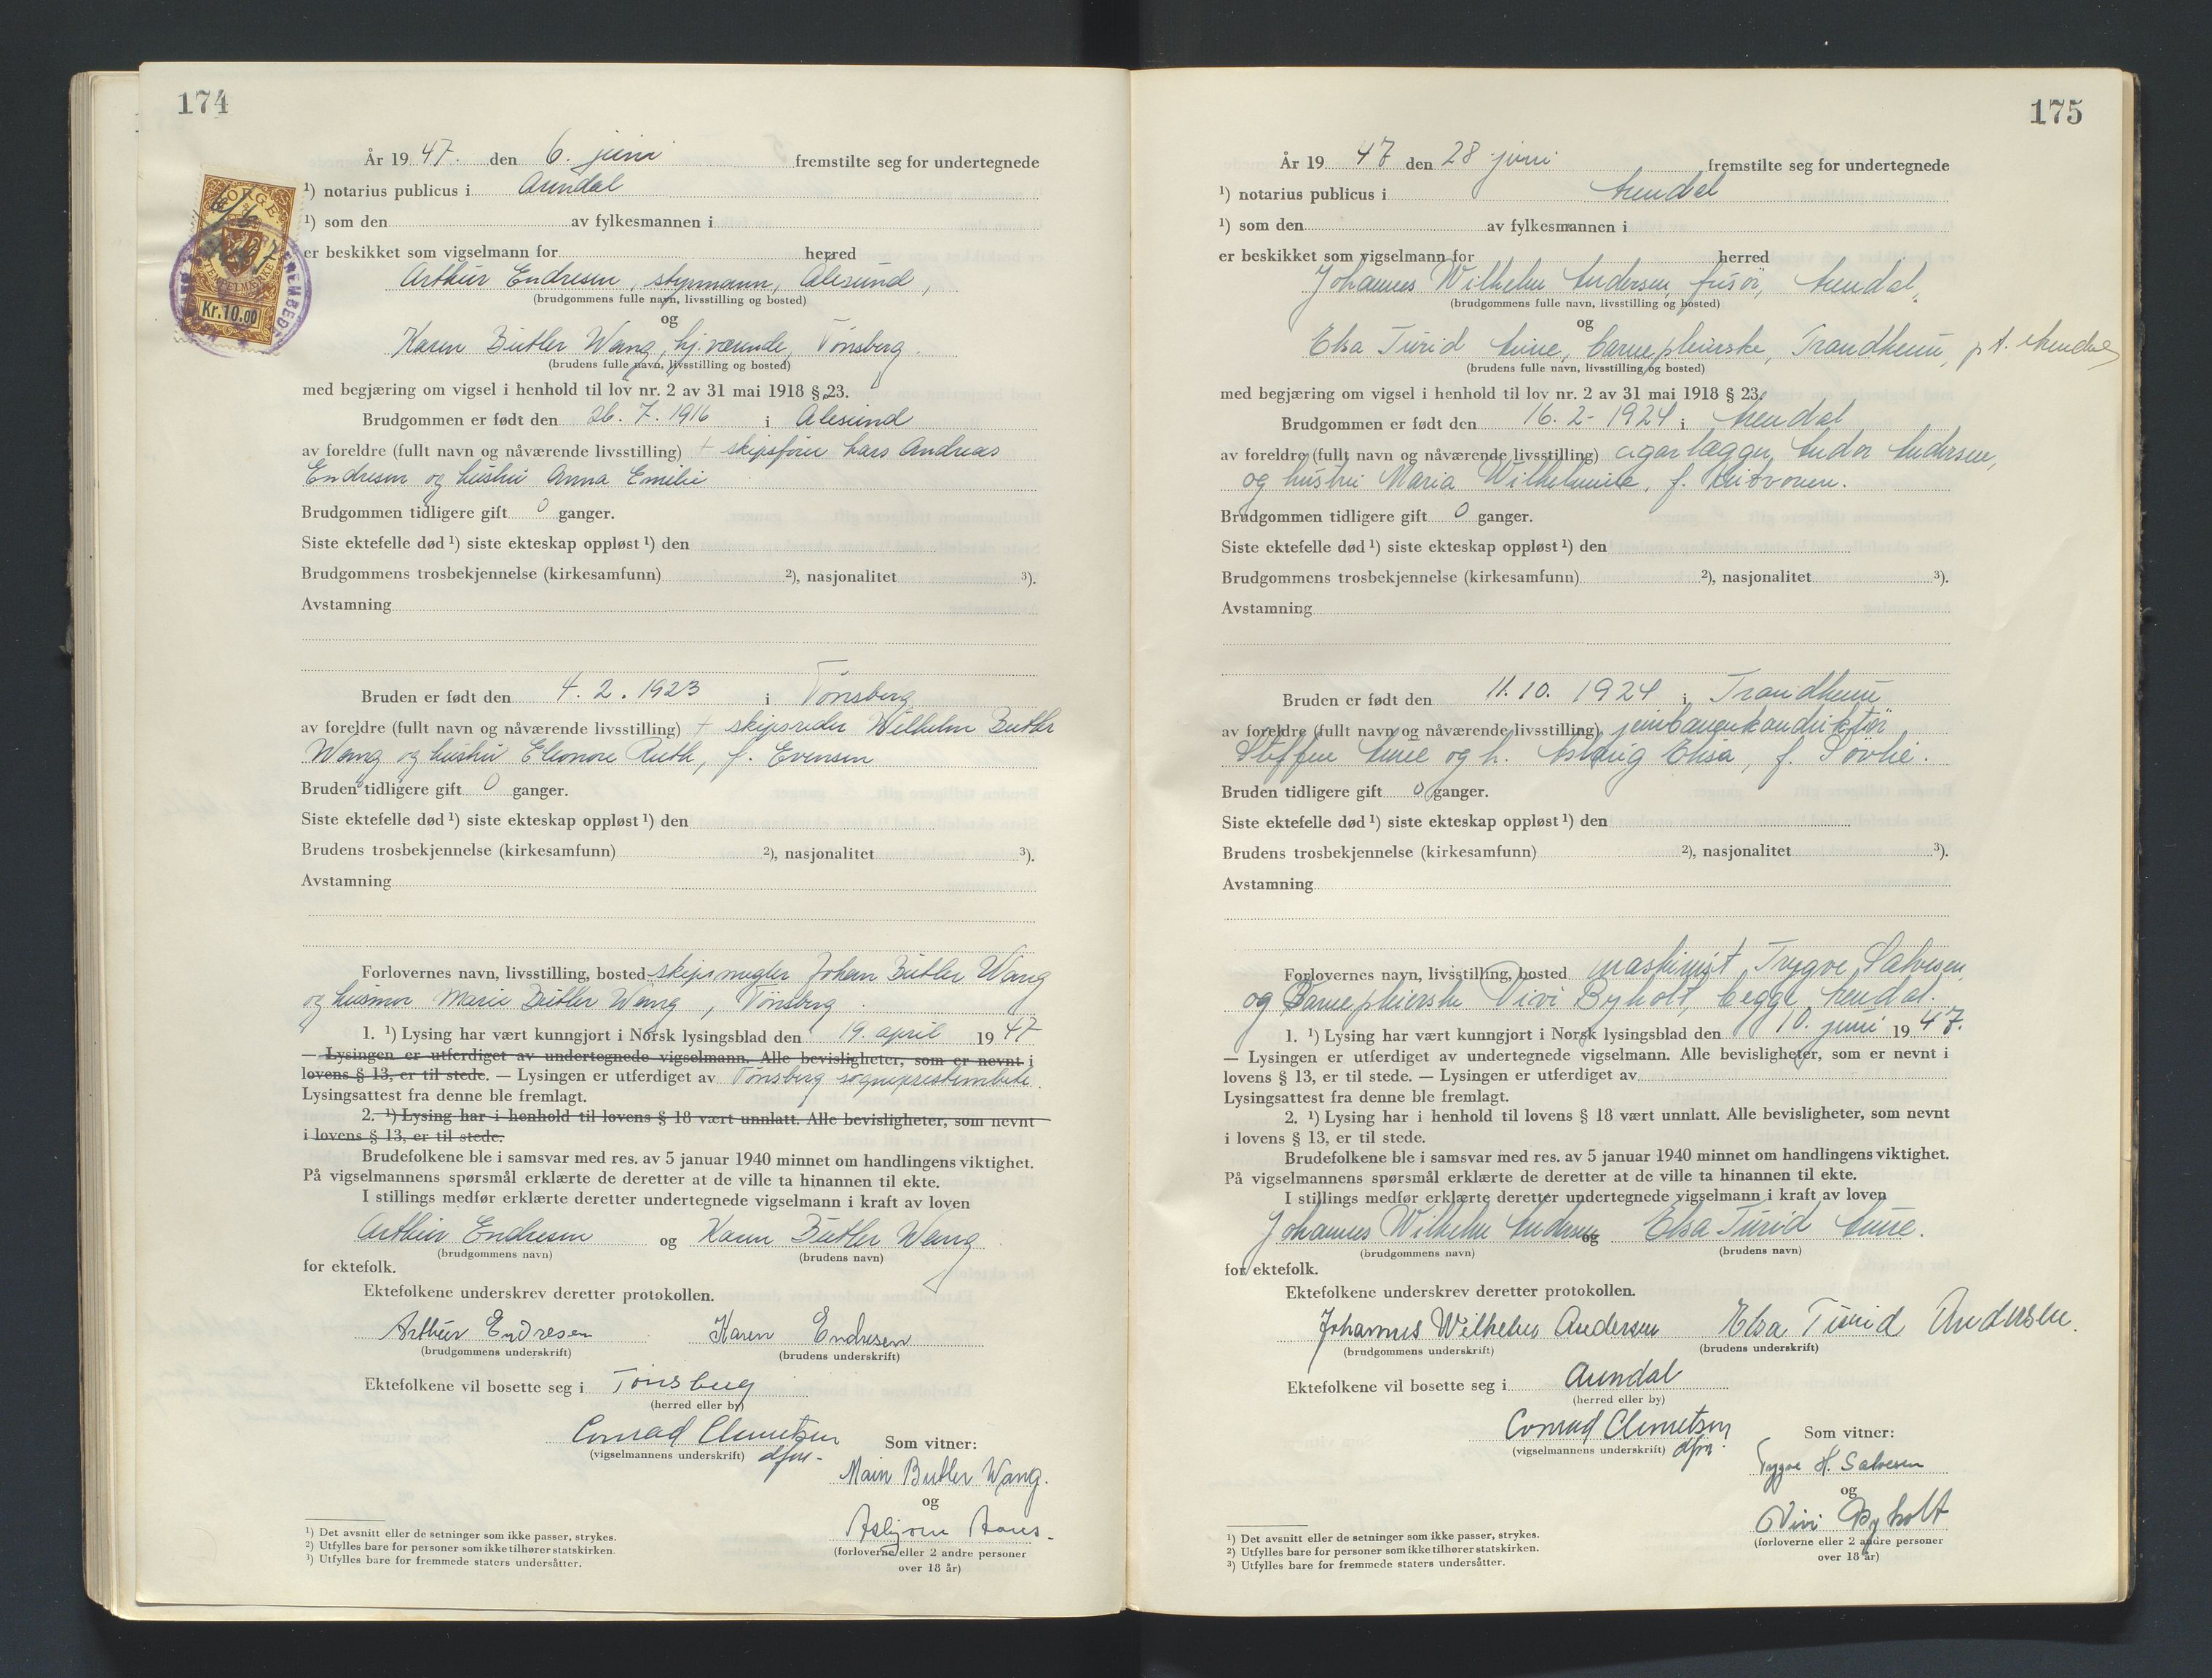 174
År 1947. den 6. juni fremstilte seg for undertegnede
¹) notarius publicus i Arendal
¹) som den av fylkesmannen i
er beskikket som vigselmann for herred
Arthur Endresen, styrmann, Ålesund,
(brudgommens fulle navn, livsstilling og bosted)
og
Karen Butler Wang, hj.værende, Tønsberg.
(brudens fulle navn, livsstilling og bosted)
med begjæring om vigsel i henhold til lov nr. 2 av 31 mai 1918 § 23.
Brudgommen er født den 26. 7. 1916 i Ålesund
av foreldre (fullt navn og nåværende livsstilling) + skipsfører Lars Andreas
Endresen og hustru Anna Emilie
Brudgommen tidligere gift 0 ganger.
Siste ektefelle død ¹) siste ekteskap oppløst ¹) den
Brudgommens trosbekjennelse (kirkesamfunn) ²), nasjonalitet ³).
Avstamning
Bruden er født den 4. 2. 1923 i Tønsberg
av foreldre (fullt navn og nåværende livsstilling) + skipsreder Wilhelm Butler
Wang og hustru Eleonore Ruth, f. Evensen
Bruden tidligere gift 0 ganger.
Siste ektefelle død ¹) siste ekteskap oppløst ¹) den
Brudens trosbekjennelse (kirkesamfunn) ²), nasjonalitet ³).
Avstamning
Forlovernes navn, livsstilling, bosted skipsmegler Johan Butler Wang
og husmor Marie Butler Wang, Tønsberg.
1. ¹) Lysing har vært kunngjort i Norsk lysingsblad den 19. april 1947
— Lysingen er utferdiget av undertegnede vigselmann. Alle bevisligheter, som er nevnt i
lovens § 13, er til stede. — Lysingen er utferdiget av Tønsberg sogneprestembete.
Lysingsattest fra denne ble fremlagt.
2. ¹) Lysing har i henhold til lovens § 18 vært unnlatt. Alle bevisligheter, som nevnt
i lovens § 13, er til stede.
Brudefolkene ble i samsvar med res. av 5 januar 1940 minnet om handlingens viktighet.
På vigselmannens spørsmål erklærte de deretter at de ville ta hinannen til ekte.
I stillings medfør erklærte deretter undertegnede vigselmann i kraft av loven
Arthur Endresen og Karen Butler Wang
(brudgommens navn) (brudens navn)
for ektefolk.
Ektefolkene underskrev deretter protokollen.
Arthur Endresen Karen Endresen
(brudgommens underskrift) (brudens underskrift)
Ektefolkene vil bosette seg i Tønsberg
(herred eller by)
Conrad Clemetsen
(vigselmannens underskrift) dfm.
Som vitner:
Butler Wang.
og
Asbjørn
(forloverne eller 2 andre personer
over 18 år)
¹) Det avsnitt eller de setninger som ikke passer, strykes.
²) Utfylles bare for personer som ikke tilhører statskirken.
³) Utfylles bare for fremmede staters undersåtter.
NORGE
STEMPELMERKE
Kr. 10.00
175
År 1947 den 28 juni fremstilte seg for undertegnede
¹) notarius publicus i Arendal
¹) som den av fylkesmannen i
er beskikket som vigselmann for herred
Johannes Wilhelm Andersen, frisør, Arendal,
(brudgommens fulle navn, livsstilling og bosted)
og
Elsa Turid Aune, barnepleierske, Trondheim, p.t. Arendal
(brudens fulle navn, livsstilling og bosted)
med begjæring om vigsel i henhold til lov nr. 2 av 31 mai 1918 § 23.
Brudgommen er født den 16. 2 - 1924 i Arendal
av foreldre (fullt navn og nåværende livsstilling) Andor Andersen,
og hustru Maria Wilhelmine, f.
Brudgommen tidligere gift 0 ganger.
Siste ektefelle død ¹) siste ekteskap oppløst ¹) den
Brudgommens trosbekjennelse (kirkesamfunn) ²), nasjonalitet ³).
Avstamning
Bruden er født den 11. 10. 1924 i Trondheim
av foreldre (fullt navn og nåværende livsstilling) jernbanekonduktør
Steffen Aune og h. Aslaug Elisa, f. Søvlie.
Bruden tidligere gift 0 ganger.
Siste ektefelle død ¹) siste ekteskap oppløst ¹) den
Brudens trosbekjennelse (kirkesamfunn) ²), nasjonalitet ³).
Avstamning
Forlovernes navn, livsstilling, bosted maskinist Trygve Salvesen,
og Barnepleierske Vivi Byholt, begge Arendal.
1. ¹) Lysing har vært kunngjort i Norsk lysingsblad den 10. juni 1947.
— Lysingen er utferdiget av undertegnede vigselmann. Alle bevisligheter, som er nevnt i
lovens § 13, er til stede. — Lysingen er utferdiget av
Lysingsattest fra denne ble fremlagt.
2. ¹) Lysing har i henhold til lovens § 18 vært unnlatt. Alle bevisligheter, som nevnt
i lovens § 13, er til stede.
Brudefolkene ble i samsvar med res. av 5 januar 1940 minnet om handlingens viktighet.
På vigselmannens spørsmål erklærte de deretter at de ville ta hinannen til ekte.
I stillings medfør erklærte deretter undertegnede vigselmann i kraft av loven
Johannes Wilhelm Andersen og Elsa Turid Aune.
(brudgommens navn) (brudens navn)
for ektefolk.
Ektefolkene underskrev deretter protokollen.
Johannes Wilhelm Andersen Elsa Turid Andersen.
(brudgommens underskrift) (brudens underskrift)
Ektefolkene vil bosette seg i Arendal
(herred eller by)
Conrad Clemetsen
(vigselmannens underskrift) dfm.
Som vitner:
Trygve H. Salvesen
og
Vivi Byholt
(forloverne eller 2 andre personer
over 18 år)
¹) Det avsnitt eller de setninger som ikke passer, strykes.
²) Utfylles bare for personer som ikke tilhører statskirken.
³) Utfylles bare for fremmede staters undersåtter.